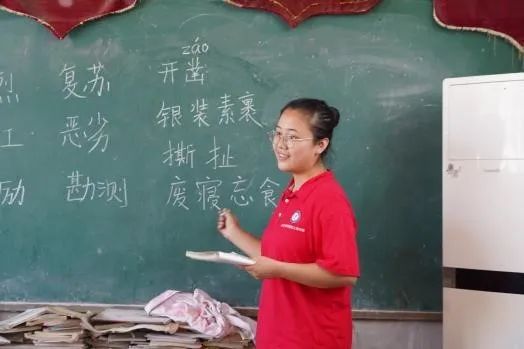 záo
烈 复苏 开凿
银装素裹
工 恶劣
撕扯
励 勘测 废寝忘食